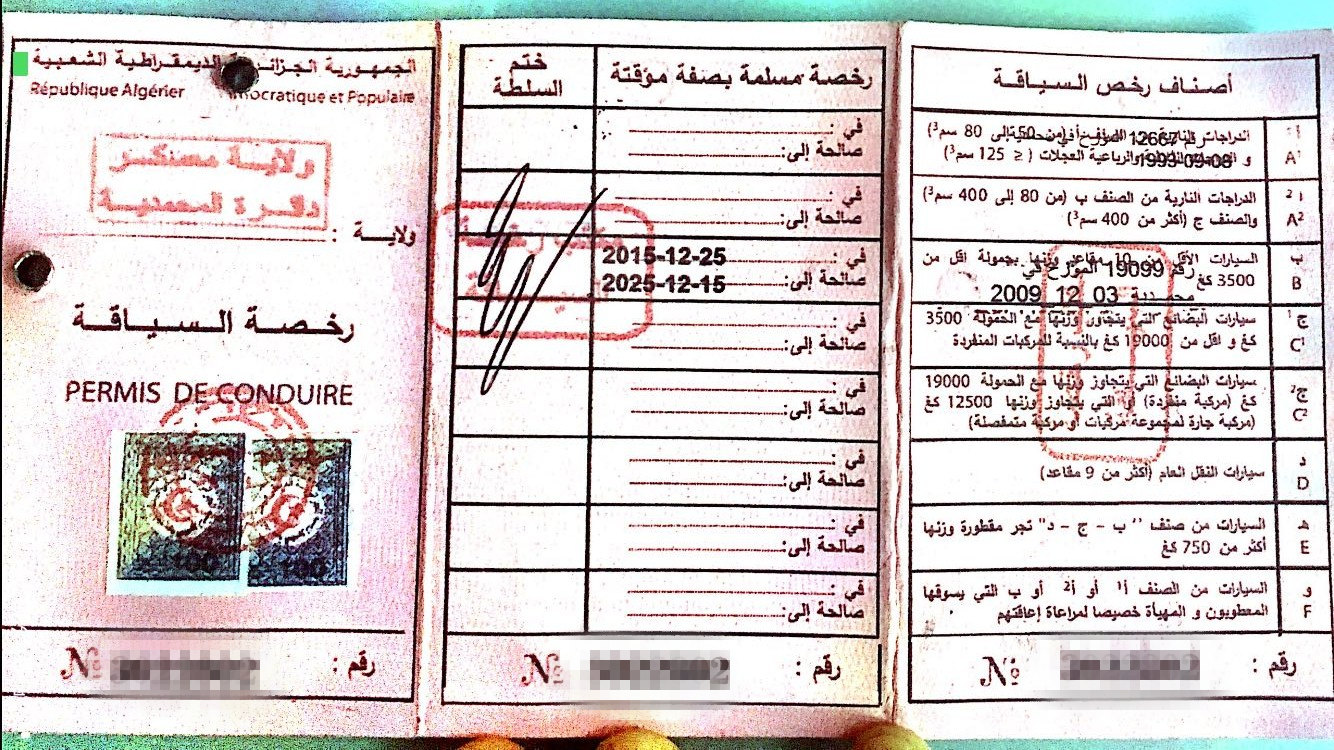 الجمهورية الجزائرية الديمقراطية الشعبية
République Algérier mocratique et Populaire
ولاية معسكر
دائرة المحمدية
ولايــة :
رخـصـة الـسـيـاقـة
PERMIS DE CONDUIRE
رقم : №
ختم السلطة
رخصة مسلمة بصفة مؤقتة
في :
صالحة إلى:
في :
صالحة إلى:
في : 2015-12-25
صالحة إلى: 2025-12-15
في :
صالحة إلى:
في :
صالحة إلى:
في :
صالحة إلى:
في :
صالحة إلى:
في :
صالحة إلى:
رقم : №
أصـنـاف رخـص الـسـيـاقـة
أ1 A1
الدراجات النارية من الصنف أ (من 50 إلى 80 سم3)
رقم 12667 المؤرخ في
و رباعية العجلات ( ≥ 125 سم3)
1999-09-08
أ2 A2
الدراجات النارية من الصنف ب (من 80 إلى 400 سم3)
والصنف ج (أكثر من 400 سم3)
ب B
السيارات الأقل من 10 مقاعد وزنها بحمولة اقل من
3500 كغ
رقم 19099 المؤرخ في
محمدية 03_12_2009
ج1 C1
سيارات البضائع التي يتجاوز وزنها مع الحمولة 3500
كغ و اقل من 19000 كغ بالنسبة للمركبات المنفردة
ج2 C2
سيارات البضائع التي يتجاوز وزنها مع الحمولة 19000
كغ (مركبة منفردة) أو التي يتجاوز وزنها 12500 كغ
(مركبة جارة لمجموعة مركبات أو مركبة متمفصلة)
د D
سيارات النقل العام (أكثر من 9 مقاعد)
هـ E
السيارات من صنف "ب - ج - د" تجر مقطورة وزنها
أكثر من 750 كغ
و F
السيارات من الصنف أ1 أو أ2 أو ب التي يسوقها
المعطوبون و المهيأة خصيصا لمراعاة إعاقتهم
رقم : №